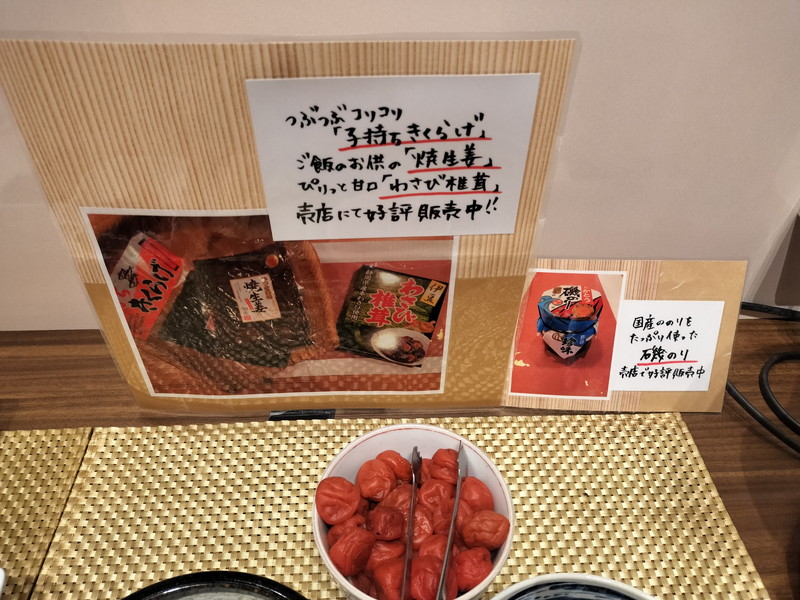 つぶつぶコリコリ
「子持ちきくらげ」
ご飯のお供の「焼生姜」
ぴりっと甘口「わさび椎茸」
売店にて好評販売中!!
きくらげ
焼生姜
伊豆
わさび
椎茸
磯のり
珍味
国産ののりを
たっぷり使った
磯のり
売店で好評販売中